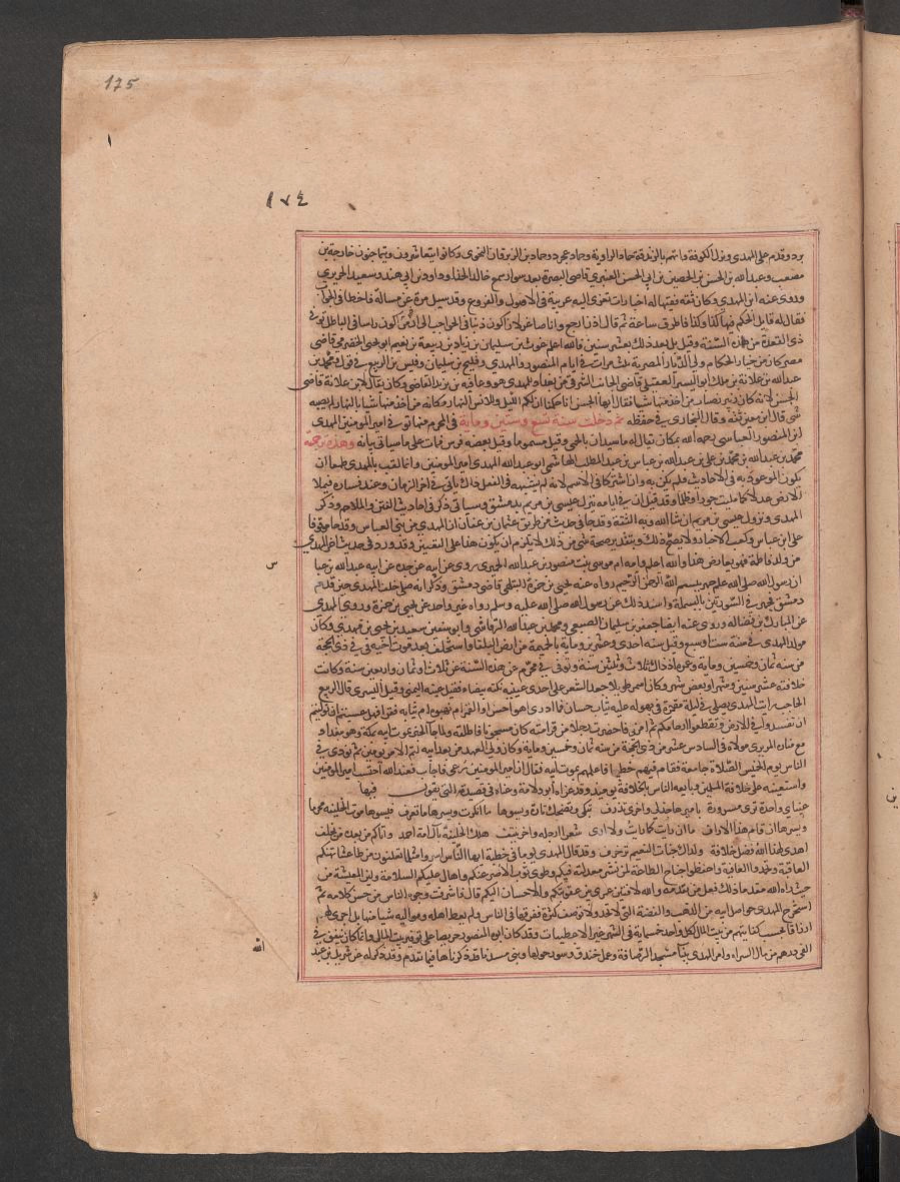 175
١٧٤
برد وقدم على المهدى ونزل الكوفة واتهم بالزندقة حماد الراوية وحماد عجرد وحماد بن الزبرقان النحوى وكانوا يتعاشرون خارجة بن
مصعب وعبد الله بن الحسن بن الحصين بن ابى الحسن العنبرى قاضى البصرة بعد سوار سمع خالد الحذاء وداود بن ابى هند وسعيد الجريرى
وروى عنه ابن المهدى وكان ثقة فقيها له اختيارات تعزى اليه غريبة فى الاصول والفروع وقد سيل مرة عن مسألة فاخطا فى الجواب
فقال له قايل الحكم فيها كذا وكذا فاطرق ساعة ثم قال اذن ارجع وانا صاغر لان اكون ذنبا فى الحق احب الى من ان اكون راسا فى الباطل توفى
ذى القعدة من هذه السنة وقيل بعد ذلك بعشر سنين فالله اعلم غوث بن سليمان بن زياد بن ربيعة بن نعيم ابو يحيى الحضرمى قاضى
مصر كان من خيار الحكام ولى الديار المصرية ثلث مرات فى ايام المنصور والمهدى وفليح بن سليمان وقيس بن الربيع فى قول ومحمد بن
عبد الله بن علاثة بن ملك ابو اليسير العقيلى قاضى الجانب الشرقى من بغداد للمهدى هو وعافية بن يزيد القاضى وكان يقال لابن علاثة قاضى
الجن لانه كان بير يصاب من اخذ منها شيا فقال ايها الجن انا حكمنا ان لكم الليل وللانس النهار فكان من اخذ منها شيا بالنهار لم يصبه
شى قال ابن معين ثقة وقال البخارى فى حفظه ثم دخلت سنة تسع وستين وماية فى المحرم منها توفى امير المومنين المهدى
ابن المنصور العباسى رحمه الله بمكان يقال له ماسبذان بالحمى وقيل مسموما وقيل بعضه فرس فمات على ما سياتى بيانه وهذه ترجمته
محمد بن عبد الله بن محمد بن على بن عبد الله بن عباس بن عبد المطلب الهاشمى ابو عبد الله المهدى امير المومنين وانما لقب بالمهدى طمعا ان
يكون الموعود به فى الاحاديث فلم يكن به وان اشتركا فى الاسم لانه لم يشبهه فى الفعل ذاك ياتى فى اخر الزمان وعند فساد فيملا
الارض عدلا كما مليت جورا وظلما وقد قيل ان فى ايامه ينزل عيسى بن مريم بدمشق وسياتى ذكر فى احاديث الفتن والملاحم وذكر
المهدى ونزول عيسى بن مريم ان شا الله وبه الثقة وقد جا فى حديث من طريق عثمان بن عفان ان المهدى من بنى العباس وقد جا موقوفا
على ابن عباس وكعب الاحبار ولا يصح ذلك وبتقدير صحة شى من ذلك لا يلزم ان يكون هذا على التعيين وقد ورد فى حديث اخر المهدى
من ولد فاطمة فهو يعارض هذا والله اعلم وامه ام موسى بنت منصور بن عبد الله الحميرى روى عن ابيه عن جده عن ابيه عبد الله بن عباس
ان رسول الله صلى الله عليه جهر ببسم الله الرحمن الرحيم رواه عنه يحيى بن حمزة البتلهى قاضى دمشق وذكر انه صلى خلف المهدى حين قدم
دمشق فجهر فى السورتين بالبسملة واسند ذلك عن رسول الله صلى الله عليه وسلم رواه غير واحد عن يحيى بن حمزة وروى المهدى
عن المبارك بن فضالة وروى عنه ايضا جعفر بن سليمان الضبعى ومحمد بن عبد الله الرقاشى وابو سفين سعيد بن يحيى بن مهدى وكان
مولد المهدى فى سنة ست او سبع وقيل سنة احدى وعشرين وماية بالحميمة من ارض البلقا واستخلف بعد موت ابيه فى ذى الحجة
من سنة ثمان وخمسين وماية وعمره اذ ذاك ثلاث وثلثين سنة وتوفى فى محرم من هذه السنة عن ثلاث او ثمان واربعين سنة وكانت
خلافته عشر سنين وشهرا وبعض شهر وكان اسمر طويلا جعد الشعر على احدى عينيه نكتة بيضاء فقيل عينه اليمنى وقيل اليسرى قال الربيع
الحاجب رايت المهدى يصلى فى ليلة مقمرة فى بهو له عليه ثياب حسان فما ادرى اهو احسن او القمر ام بهوه ام ثيابه فقرا فهل عسيتم ان توليتم
ان تفسدوا فى الارض وتقطعوا ارحامكم ثم امرنى فاحضرت رجلا من قرابته كان مسجونا فاطلقه ولما جا الخبر بموت ابيه بمكة وهو ببغداد
مع منارة البربرى مولاه فى السادس عشر من ذى الحجة من سنة ثمان وخمسين وماية وكان ولى العهد من بعد ابيه كتم الامر يومين ثم نودى فى
الناس يوم الخميس الصلاة جامعة فقام فيهم خطيبا فاعلمهم بموت ابيه فقال ان امير المومنين دعى فاجاب فعند الله احتسب امير المومنين
واستعينه على خلافة المسلمين وبايعه الناس بالخلافة يوميد وقد عزاه ابو دلامة وهناه فى قصيدته التى يقول فيها
عيناى واحدة ترى مسرورة بامرها جذلى واخرى تذرف تبكى وتضحك تارة ويسوها ما انكرت ويسرها ما تعرف فيسوها موت الخليفة محرما
ويسرها ان قام هذا الاراف ما ان رايت كما رايت ولا ارى شعرا ارجله واخر ينتف هلك الخليفة يال امة احمد واتاكم من بعده من يخلف
اهدى لهذا الله فضل خلافة ولذاك جنات النعيم تزخرف وقد قال المهدى يوما فى خطبة ايها الناس اسروا مثل ما تعلنون من طاعتنا تهنكم
العافية وتحمدوا العاقبة واخفضوا جناح الطاعة لمن نشر معدلته فيكم وطوى ثوب الاصر عنكم واهال عليكم السلامة ولين المعيشة من
حيث اراه الله مقدما ذلك فعل من تقدمه والله لافنين عمرى بين عقوبتكم والاحسان اليكم قال فاشرقت وجوه الناس من حسن كلامه ثم
استخرج المهدى حواصل ابيه من الذهب والفضة التى لا تحد ولا توصف كثرة ففرقها فى الناس ولم يعط اهله ومواليه شيا منها بل اجرى لهم
ارزاقا بحسب كفايتهم من بيت المال لكل واحد خمسماية فى الشهر غير الاعطيات وقد كان ابن المنصور حريصا على توفير بيت المال وانما كان ينفق فى
الفى درهم من مال السراة وامر المهدى ببنا مسجد الرصافة وعمل خندق وسور حولها وبنى مدنا قد ذكرناها فيما تقدم وقد ذكر له عن شريك بن عبد
الله